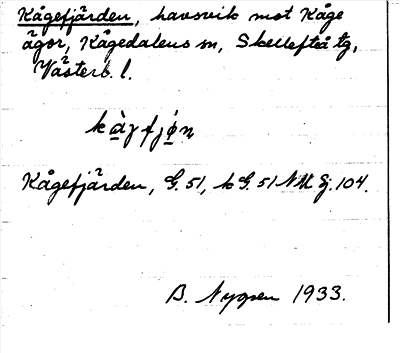 Kågefjärden, havsvik mot Kåge
ägor, Kågedalens sn, Skellefteå tg,
Västerb. l.
Kågefjärden, G. 51, k G. 51 NU Sj. 104.
B. Nygren 1933.